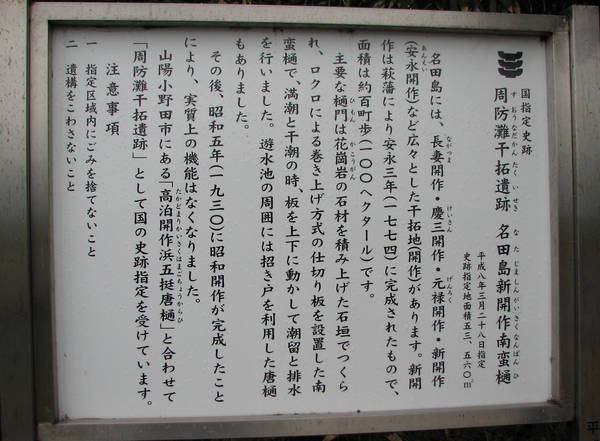 国指定史跡
周防灘干拓遺跡 名田島新開作南蛮樋
すおうなだかんたくいせき なたじましんがいさくなんばんひ
平成八年三月二十八日指定
史跡指定地面積五三、五六〇㎡
名田島には、長妻開作・慶三開作・元禄開作・新開作
ながつま けいさん げんろく
(安永開作)など広々とした干拓地開作)があります。新開
あんえい
作は萩藩により安永三年(一七七四)に完成されたもので、
面積は約百町歩(一〇〇ヘクタール)です。
主要な樋門は花崗岩の石材を積み上げた石垣でつくら
ひもん かこうがん
れ、ロクロによる巻き上げ方式の仕切り板を設置した南
蛮樋で、満潮と干潮の時、板を上下に動かして潮留と排水
を行いました。 遊水池の周囲には招き戸を利用した唐樋
もありました。
その後、昭和五年(一九三〇)に昭和開作が完成したこと
により、実質上の機能はなくなりました。
山陽小野田市にある「高泊開作浜五挺唐樋」と合わせて
たかどまりかいさくはまごちょうからひ
「周防灘干拓遺跡」として国の史跡指定を受けています。
注意事項
一 指定区域内にごみを捨てないこと
二 遺構をこわさないこと
平